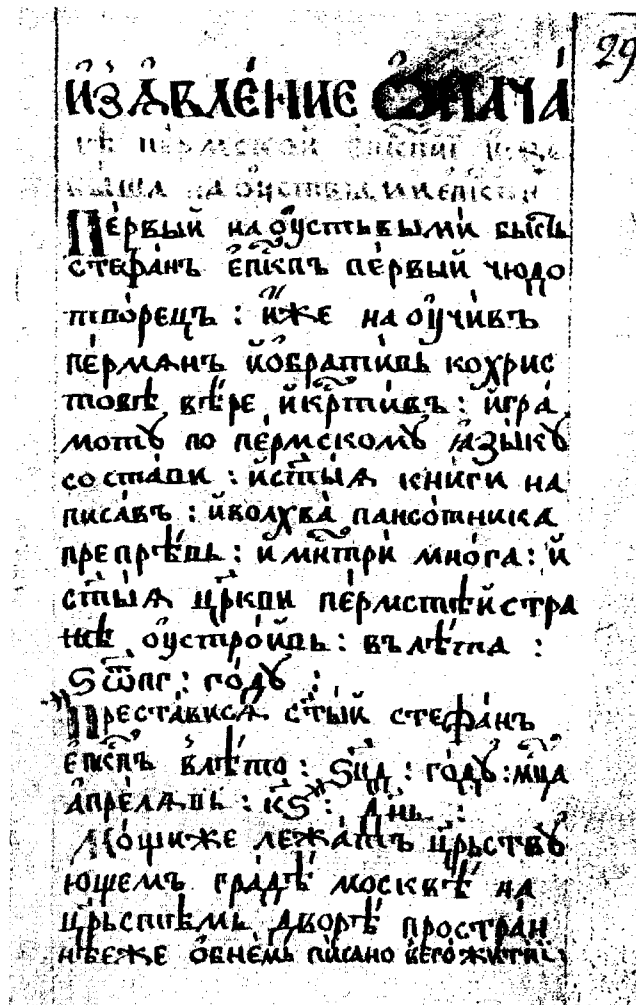 29
И҆З̾Ѧ҆ВЛЕ́НИЕ Ѿ НАЧА́
лѣ пе́рмской є҆пⷭ҇кпиї и҆же
бы́ша на оу҆стьвыми є҆пⷭ҇кпи
Пе́рвый на оу҆стьвыми́ бы́сть
стефа́нъ є҆пⷭ҇кпъ пе́рвый чюдо
тво́рецъ : и҆́же наоу҆чи́въ
пе́рмѧнъ и҆ѡбрати́въ кохрис
товѣ вѣ́ре и҆крⷭ҇ти́въ : и҆гра́
мотꙋ по пе́рмскомꙋ ꙗ҆зы́кꙋ
соста́ви : и҆ст҃ы́ѧ кни́ги на
писа́въ : и҆волхва́ пансо́тника
препрѣ́въ : и҆ мⷩ҇три́ мно́га : и҆
ст҃ы́ѧ цр҃кви пе́рмстѣй стра
не̾ оу҆стро́ивъ : въ лѣ́та :
ѕ҃ѿпг : го́дꙋ :
Преста́висѧ ст҃ы́й стефа́нъ
є҆пⷭ҇кпъ влѣ́то : ѕ҃цд : го́дꙋ : мц҃а
а҆пре́лѧвъ : к҃ѕ : д҃нь :
Мо́щиже лежа́тъ цр҃ьствꙋ
ющемъ гра́дѣ москвѣ̀ на
цр҃ьстѣмъ дворѣ̀ простра́н
нѣеже о҆бне́мъ пи́сано вего́ житиї